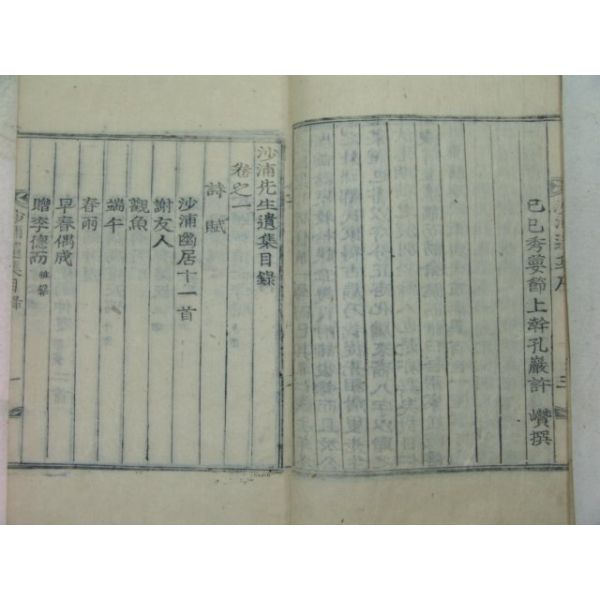 沙浦遺集序
三
己巳秀葽節上幹孔巖許 巑撰
沙浦先生遺集目錄
卷之一
詩 賦
沙浦幽居十一首
謝友人
觀魚
端午
春雨
早春偶成
贈李德而
沙浦遺集目錄
一